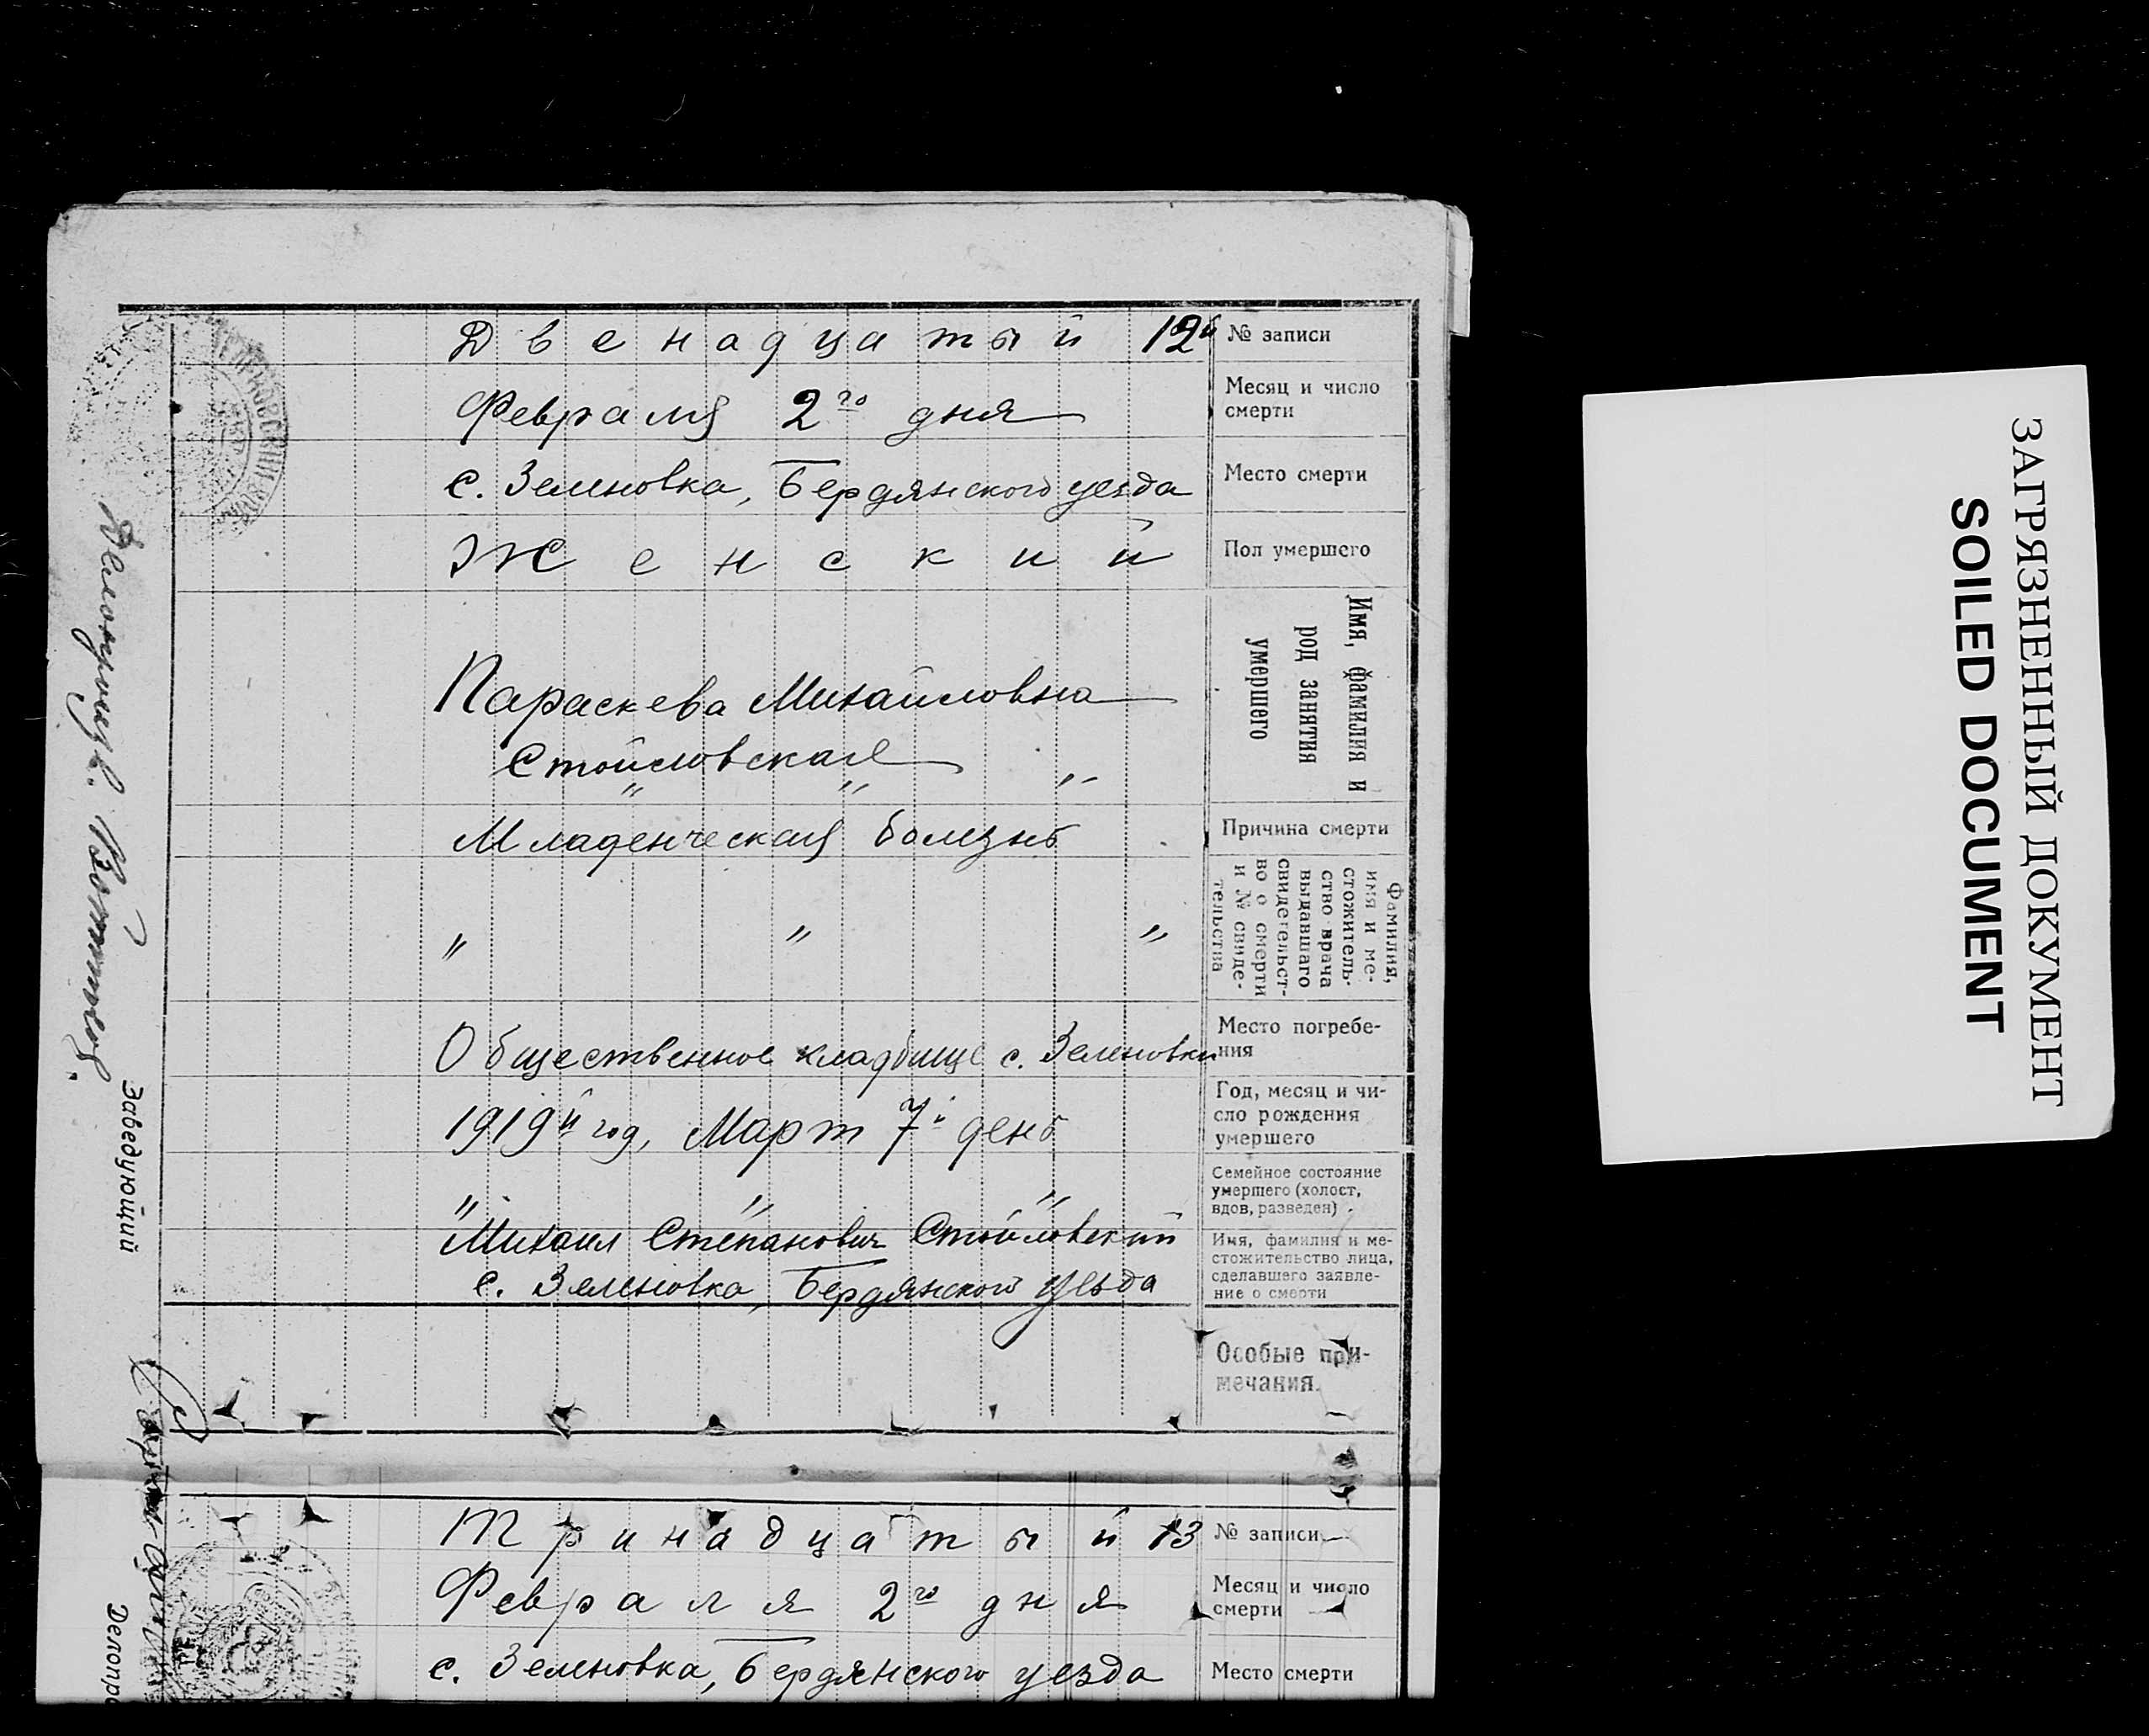 Двенадцатый 12й № записи
Февраля 2го дня
Месяц и число
смерти
с. Зеленовка, Бердянского уезда
Место смерти
Женский
Пол умершего
Параскева Михайловна
Стойловская
" " "
Имя, фамилия и
род занятия
умершего
Младенческая болезнь
Причина смерти
" " "
Фамилия,
имя и ме-
стожитель-
ство врача
выдавшего
свидетельст-
во о смерти
и № свиде-
тельства
Общественное кладбище с. Зеленовки
Место погребе-
ния
1919й год, Март 7й день
Год, месяц и чи-
сло рождения
умершего
" " "
Семейное состояние
умершего (холост,
вдов, разведен)
Михаил Степанович Стойловский
с. Зеленовка, Бердянского уезда
Имя, фамилия и ме-
стожительство лица,
сделавшего заявле-
ние о смерти
Особые при-
мечания.
Заведующий
Тринадцатый 13 № записи
Февраля 2го дня
Месяц и число
смерти
с. Зеленовка, Бердянского уезда
Место смерти
Делопро
ЗАГРЯЗНЕННЫЙ ДОКУМЕНТ
SOILED DOCUMENT